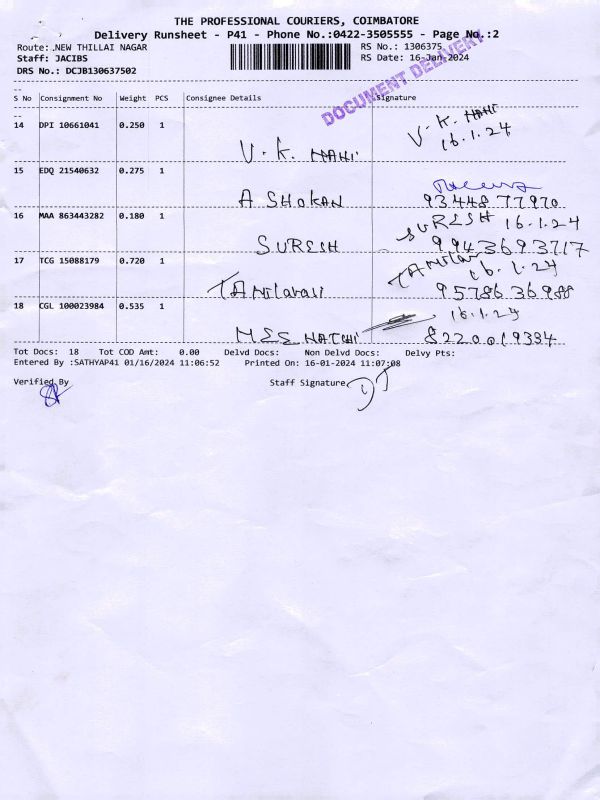 THE PROFESSIONAL COURIERS, COIMBATORE
Delivery Runsheet - P41 - Phone No.:0422-3505555 - Page No.:2
Route: .NEW THILLAI NAGAR RS No.: 1306375
Staff: JACIBS RS Date: 16-Jan-2024
DRS No.: DCJB130637502
DOCUMENT DELIVERY
S No Consignment No Weight PCS Consignee Details Signature
14 DPI 10661041 0.250 1
V. K. MAHI V. K. MAHI
16.1.24
15 EDQ 21540632 0.275 1
ASHOKAN 9344877970
16 MAA 863443282 0.180 1 SURESH 16.1.24
SURESH 9943693717
17 TCG 15088179 0.720 1 16.1.24
TAMilarasi 9578636988
18 CGL 100023984 0.535 1 16.1.24
MEENATCHI 8220019334
Tot Docs: 18 Tot COD Amt: 0.00 Delvd Docs: Non Delvd Docs: Delvy Pts:
Entered By :SATHYAP41 01/16/2024 11:06:52 Printed On: 16-01-2024 11:07:08
Verified By Staff Signature